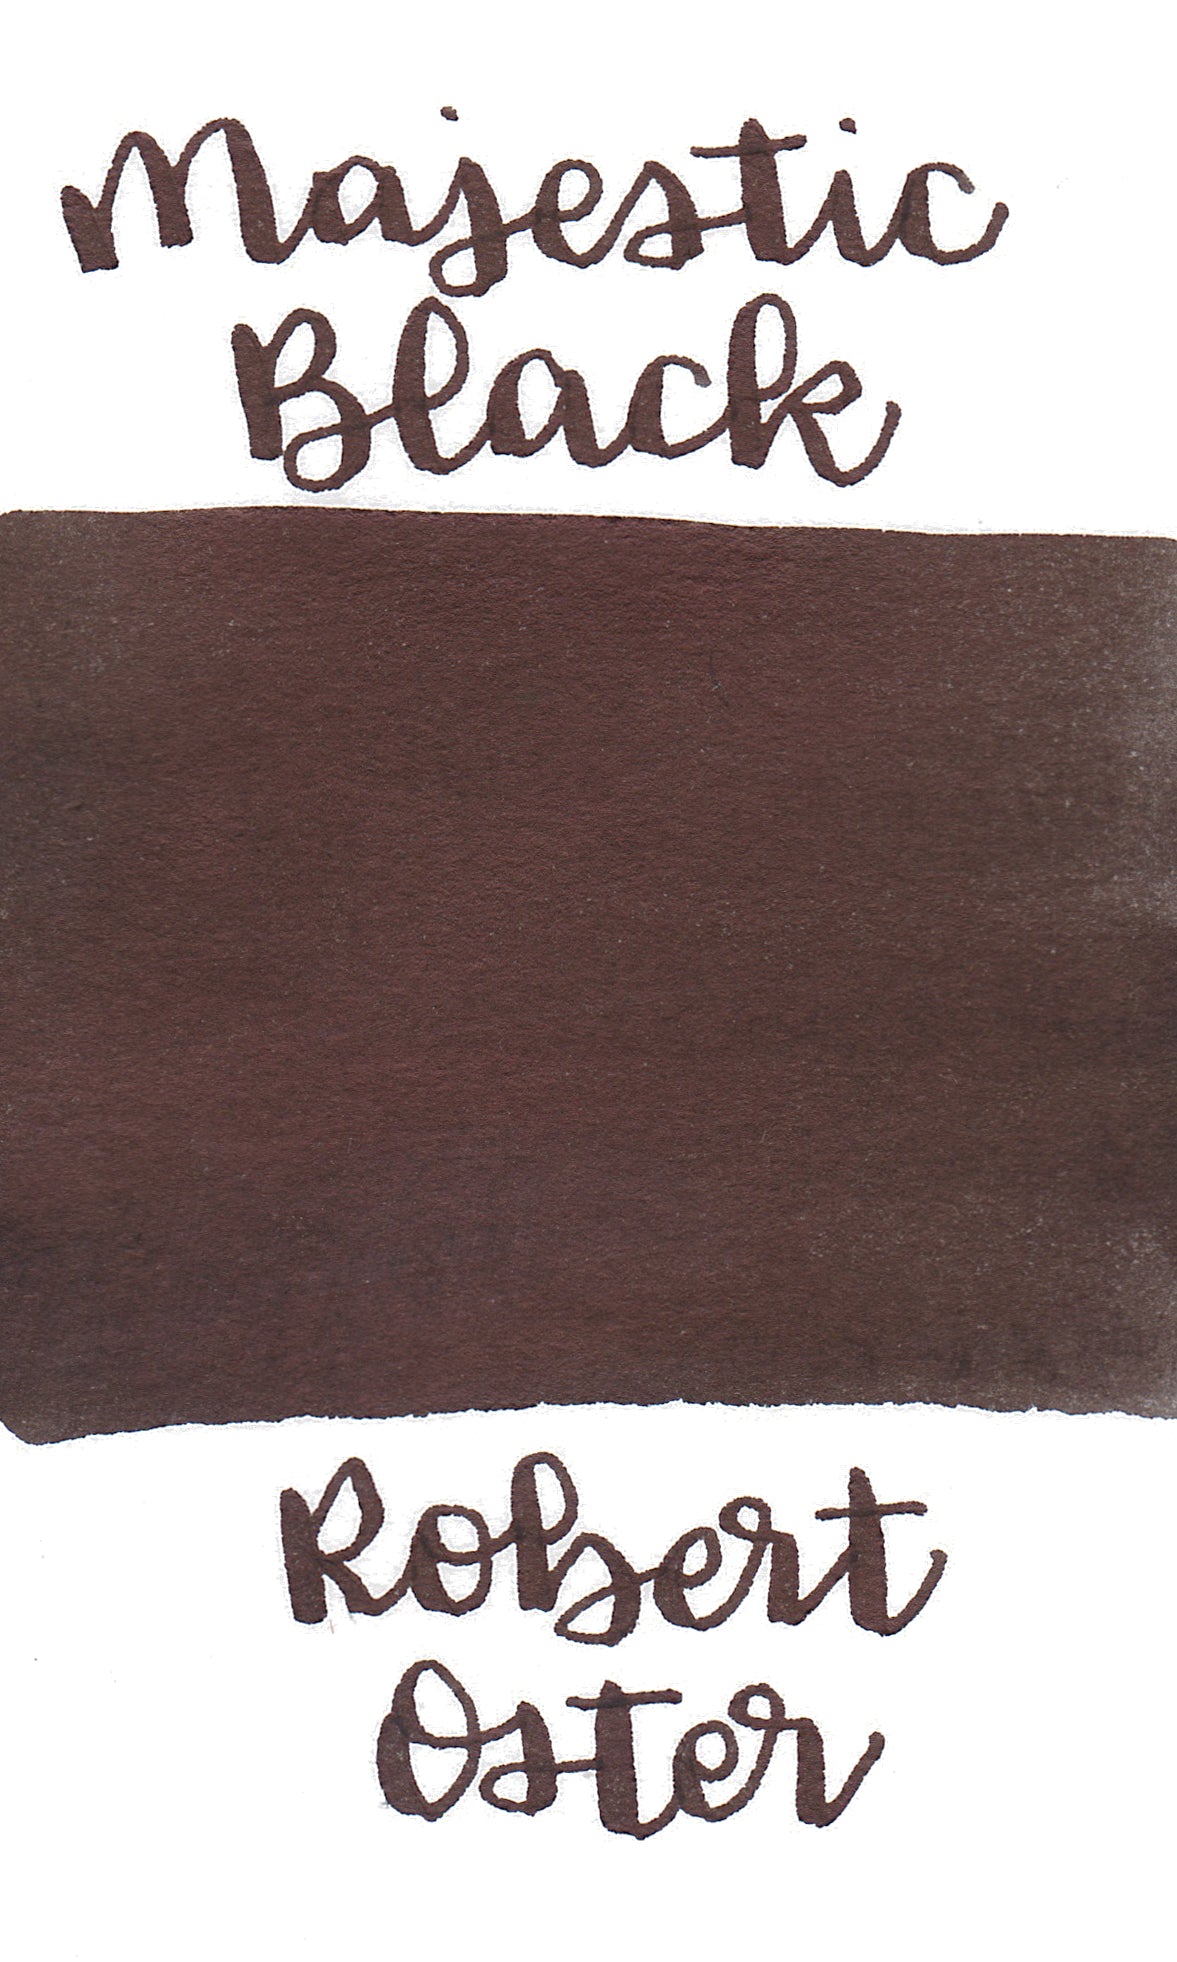 Majestic
Black
Robert
Oster